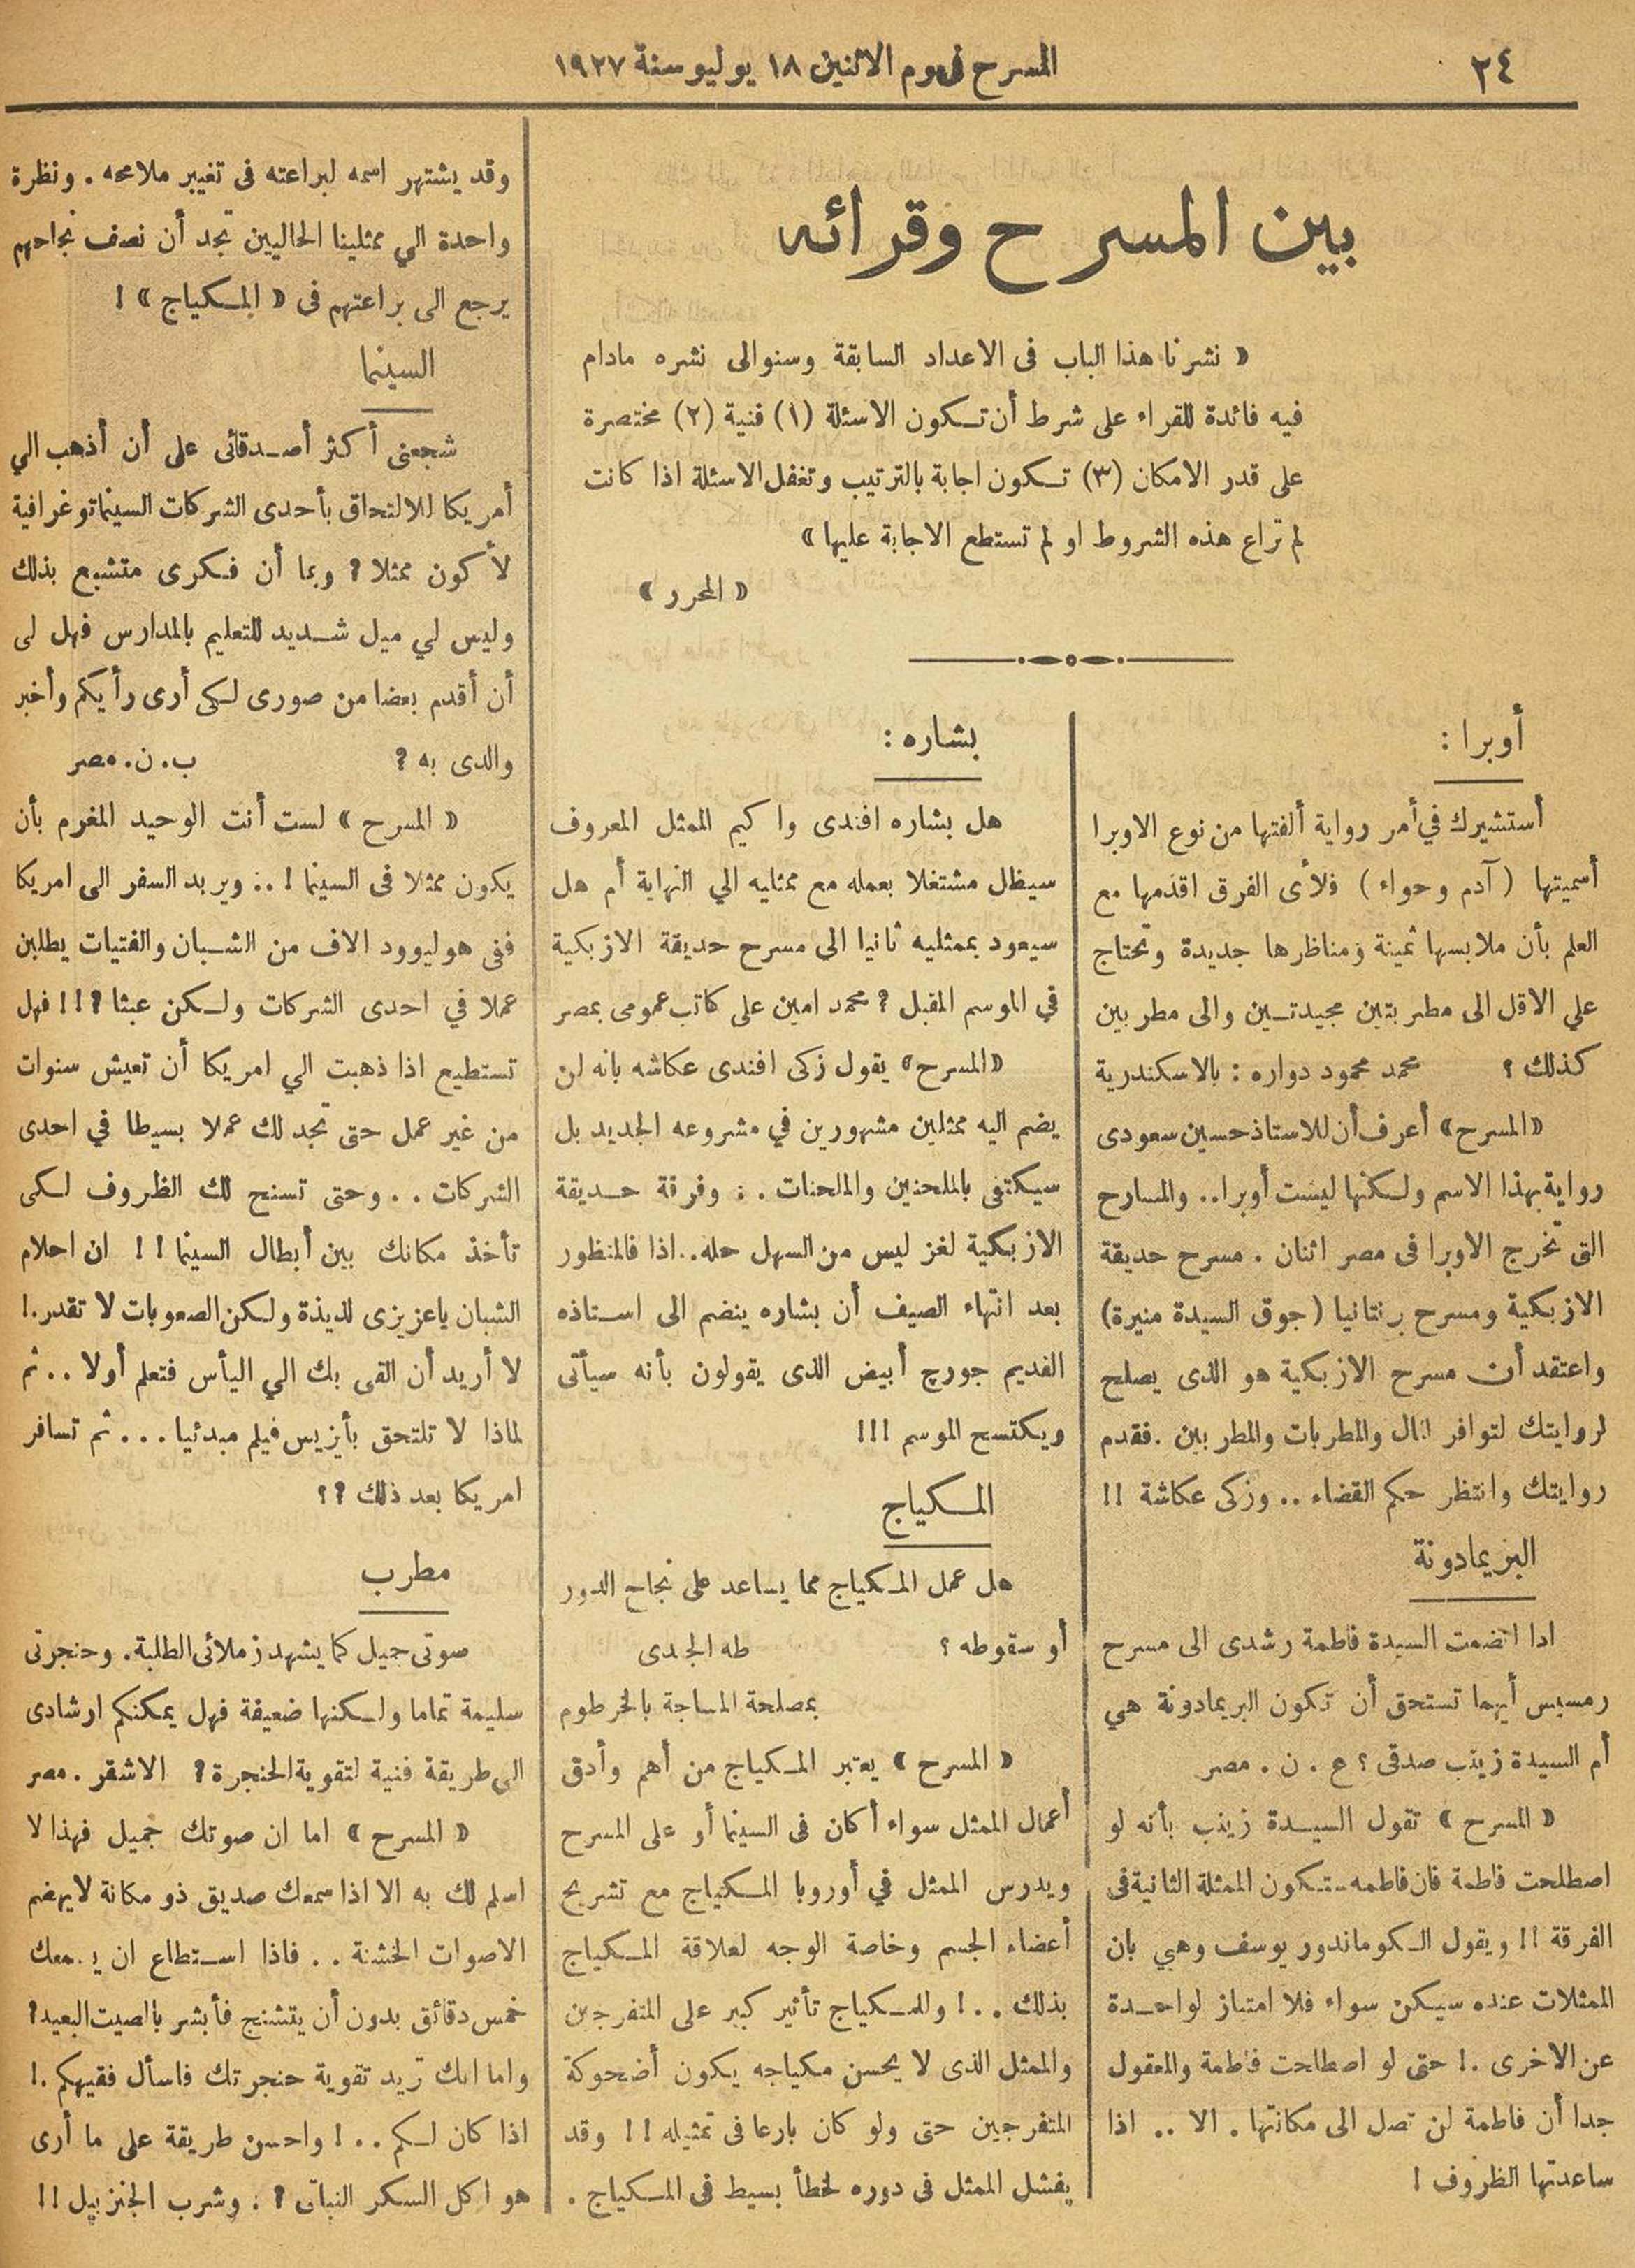 ٢٤
المسرح فى يوم الاثنين ١٨ يوليو سنة ١٩٢٧
بين المسرح وقرائه
« نشرنا هذا الباب فى الاعداد السابقة وسنوالى نشره مادام
فيه فائدة للقراء على شرط أن تكون الاسئلة (١) فنية (٢) مختصرة
على قدر الامكان (٣) تكون اجابة بالترتيب وتغفل الاسئلة اذا كانت
لم تراع هذه الشروط او لم تستطع الاجابة عليها »
« المحرر »
أوبرا :
أستشيرك في أمر رواية ألفتها من نوع الاوبرا
أسميتها ( آدم وحواء ) فلأى الفرق اقدمها مع
العلم بأن ملابسها ثمينة ومناظرها جديدة وتحتاج
علي الاقل الى مطربتين مجيدتين والى مطربين
كذلك ؟ محمد محمود دواره : بالاسكندرية
«المسرح» أعرف أن للاستاذ حسين سعودى
رواية بهذا الاسم ولكنها ليست أوبرا.. والمسارح
التى تخرج الاوبرا فى مصر اثنان . مسرح حديقة
الازبكية ومسرح برنتانيا (جوق السيدة منيرة)
واعتقد أن مسرح الازبكية هو الذى يصلح
لروايتك لتوافر المال والمطربات والمطربين . فقدم
روايتك وانتظر حكم القضاء .. وزكى عكاشة !!
البريمادونة
اذا انضمت السيدة فاطمة رشدى الى مسرح
رمسيس أيهما تستحق أن تكون البريمادونة هي
أم السيدة زينب صدقى ؟ ع . ن . مصر
« المسرح » تقول السيدة زينب بأنه لو
اصطلحت فاطمة فان فاطمه ستكون الممثلة الثانية فى
الفرقة !! ويقول الكوماندور يوسف وهبي بان
الممثلات عنده سيكن سواء فلا امتياز لواحدة
عن الاخرى .! حتى لو اصطلحت فاطمة والمعقول
جدا أن فاطمة لن تصل الى مكانتها . الا .. اذا
ساعدتها الظروف !
بشاره :
هل بشاره افندى واكيم الممثل المعروف
سيظل مشتغلا بعمله مع ممثليه الي النهاية أم هل
سيعود بممثليه ثانيا الى مسرح حديقة الازبكية
في الموسم المقبل ؟ محمد امين على كاتب عمومى بمصر
«المسرح» يقول زكى افندى عكاشه بانه لن
يضم اليه ممثلين مشهورين في مشروعه الجديد بل
سيكتفى بالملحنين والملحنات . : وفرقة حديقة
الازبكية لغز ليس من السهل حله.. اذا فالمنظور
بعد انتهاء الصيف أن بشاره ينضم الى استاذه
القديم جورج أبيض الذى يقولون بأنه سيأتى
ويكتسح الموسم !!!
المكياج
هل عمل المكياج مما يساعد على نجاح الدور
أو سقوطه ؟ طه الجدى
بمصلحة المساحة بالخرطوم
« المسرح » يعتبر المكياج من أهم وأدق
أعمال الممثل سواء أكان فى السينما أو على المسرح
ويدرس الممثل في أوروبا المكياج مع تشريح
أعضاء الجسم وخاصة الوجه لعلاقة المكياج
بذلك . .! وللمكياج تأثير كبير على المتفرجين
والممثل الذى لا يحسن مكياجه يكون أضحوكة
المتفرجين حتى ولو كان بارعا فى تمثيله !! وقد
يفشل الممثل فى دوره لخطأ بسيط فى المكياج .
وقد يشتهر اسمه لبراعته فى تغيير ملامحه . ونظرة
واحدة الي ممثلينا الحاليين تجد أن نصف نجاحهم
يرجع الى براعتهم فى « المكياج » !
السينما
شجعنى أكثر أصدقائى على أن أذهب الي
أمريكا للالتحاق بأحدى الشركات السينماتوغرافية
لأكون ممثلا ؟ وبما أن فكرى متشبع بذلك
وليس لي ميل شديد للتعليم بالمدارس فهل لى
أن أقدم بعضا من صورى لكى أرى رأيكم وأخبر
والدى به ؟ ب . ن . مصر
« المسرح » لست أنت الوحيد المغرم بأن
يكون ممثلا فى السينما ! .. ويريد السفر الى امريكا
ففى هوليوود الاف من الشبان والفتيات يطلبن
عملا في احدى الشركات ولكن عبثا ؟ !! فهل
تستطيع اذا ذهبت الي امريكا أن تعيش سنوات
من غير عمل حتى تجد لك عملا بسيطا في احدى
الشركات .. وحتى تسنح لك الظروف لكى
تأخذ مكانك بين أبطال السينما !! ان احلام
الشبان ياعزيزى لذيذة ولكن الصعوبات لا تقدر.!
لا أريد أن القى بك الي اليأس فتعلم أولا .. ثم
لماذا لا تلتحق بأيزيس فيلم مبدئيا ... ثم تسافر
امريكا بعد ذلك ؟ ؟
مطرب
صوتى جميل كما يشهد زملائى الطلبة . وحنجرتى
سليمة تماما ولكنها ضعيفة فهل يمكنكم ارشادى
الى طريقة فنية لتقوية الحنجرة ؟ الاشقر . مصر
« المسرح » اما ان صوتك جميل فهذا لا
اسلم لك به الا اذا سمعك صديق ذو مكانة لايهضم
الاصوات الخشنة . . فاذا استطاع ان يسمعك
خمس دقائق بدون أن يتشنج فأبشر بالصيت البعيد؟
واما انك تريد تقوية حنجرتك فاسأل فقيهكم .!
اذا كان لكم . . ! واحسن طريقة على ما أرى
هو اكل السكر النباتى ؟ : وشرب الجنزبيل !!